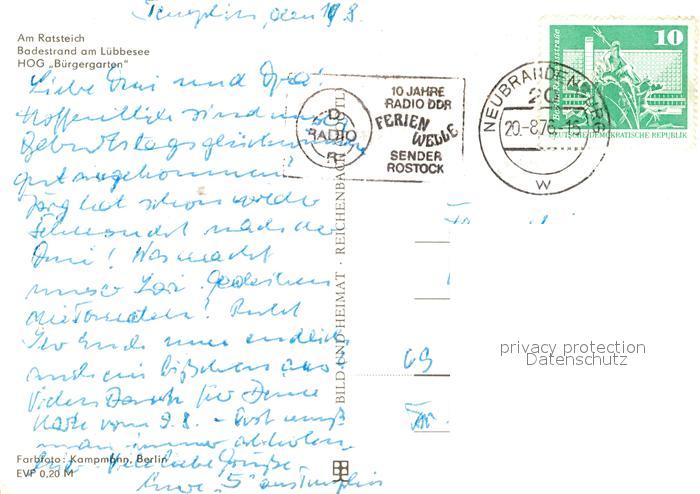 Templin, den 19.8.
Am Ratsteich
Badestrand am Lübbesee
HOG „Bürgergarten"
Liebe Omi und Opa!
Hoffentlich sind unsere
Geburtstagsglückwünsche
gut angekommen!
Jörg hat schon wieder
Sehnsucht nach der
Omi! Was macht
unser Gedeihen
die Tomaten? Ruht
Ihr Euch nun endlich
auch ein bißchen aus
Vielen Dank für Deine
Karte vom 9.8. - Post muß
man immer abholen.
viele liebe Grüße
Eure "5" aus Templin
Farbfoto: Kampmann, Berlin
EVP 0,20 M
BILD UND HEIMAT · REICHENBACH (VOGTL)
RADIO
DDR
10 JAHRE
RADIO DDR
FERIEN
WELLE
SENDER
ROSTOCK
NEUBRANDENBURG
20
20.-8.76.-16
w
10
Berlin, Rathausstraße
DEUTSCHE DEMOKRATISCHE REPUBLIK
69
privacy protection
Datenschutz